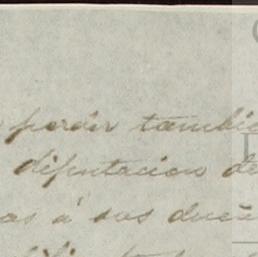 perder tambie
diputacion de
as á sus dueñ